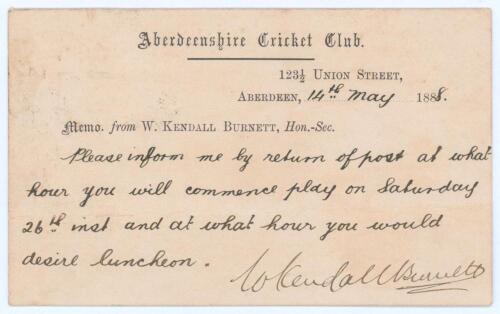 Aberdeenshire Cricket Club.
123½ Union Street,
Aberdeen, 14th May 1888.
Memo. from W. Kendall Burnett, Hon.-Sec.
Please inform me by return of post at what
hour you will commence play on Saturday
26th inst and at what hour you would
desire luncheon.
W Kendall Burnett